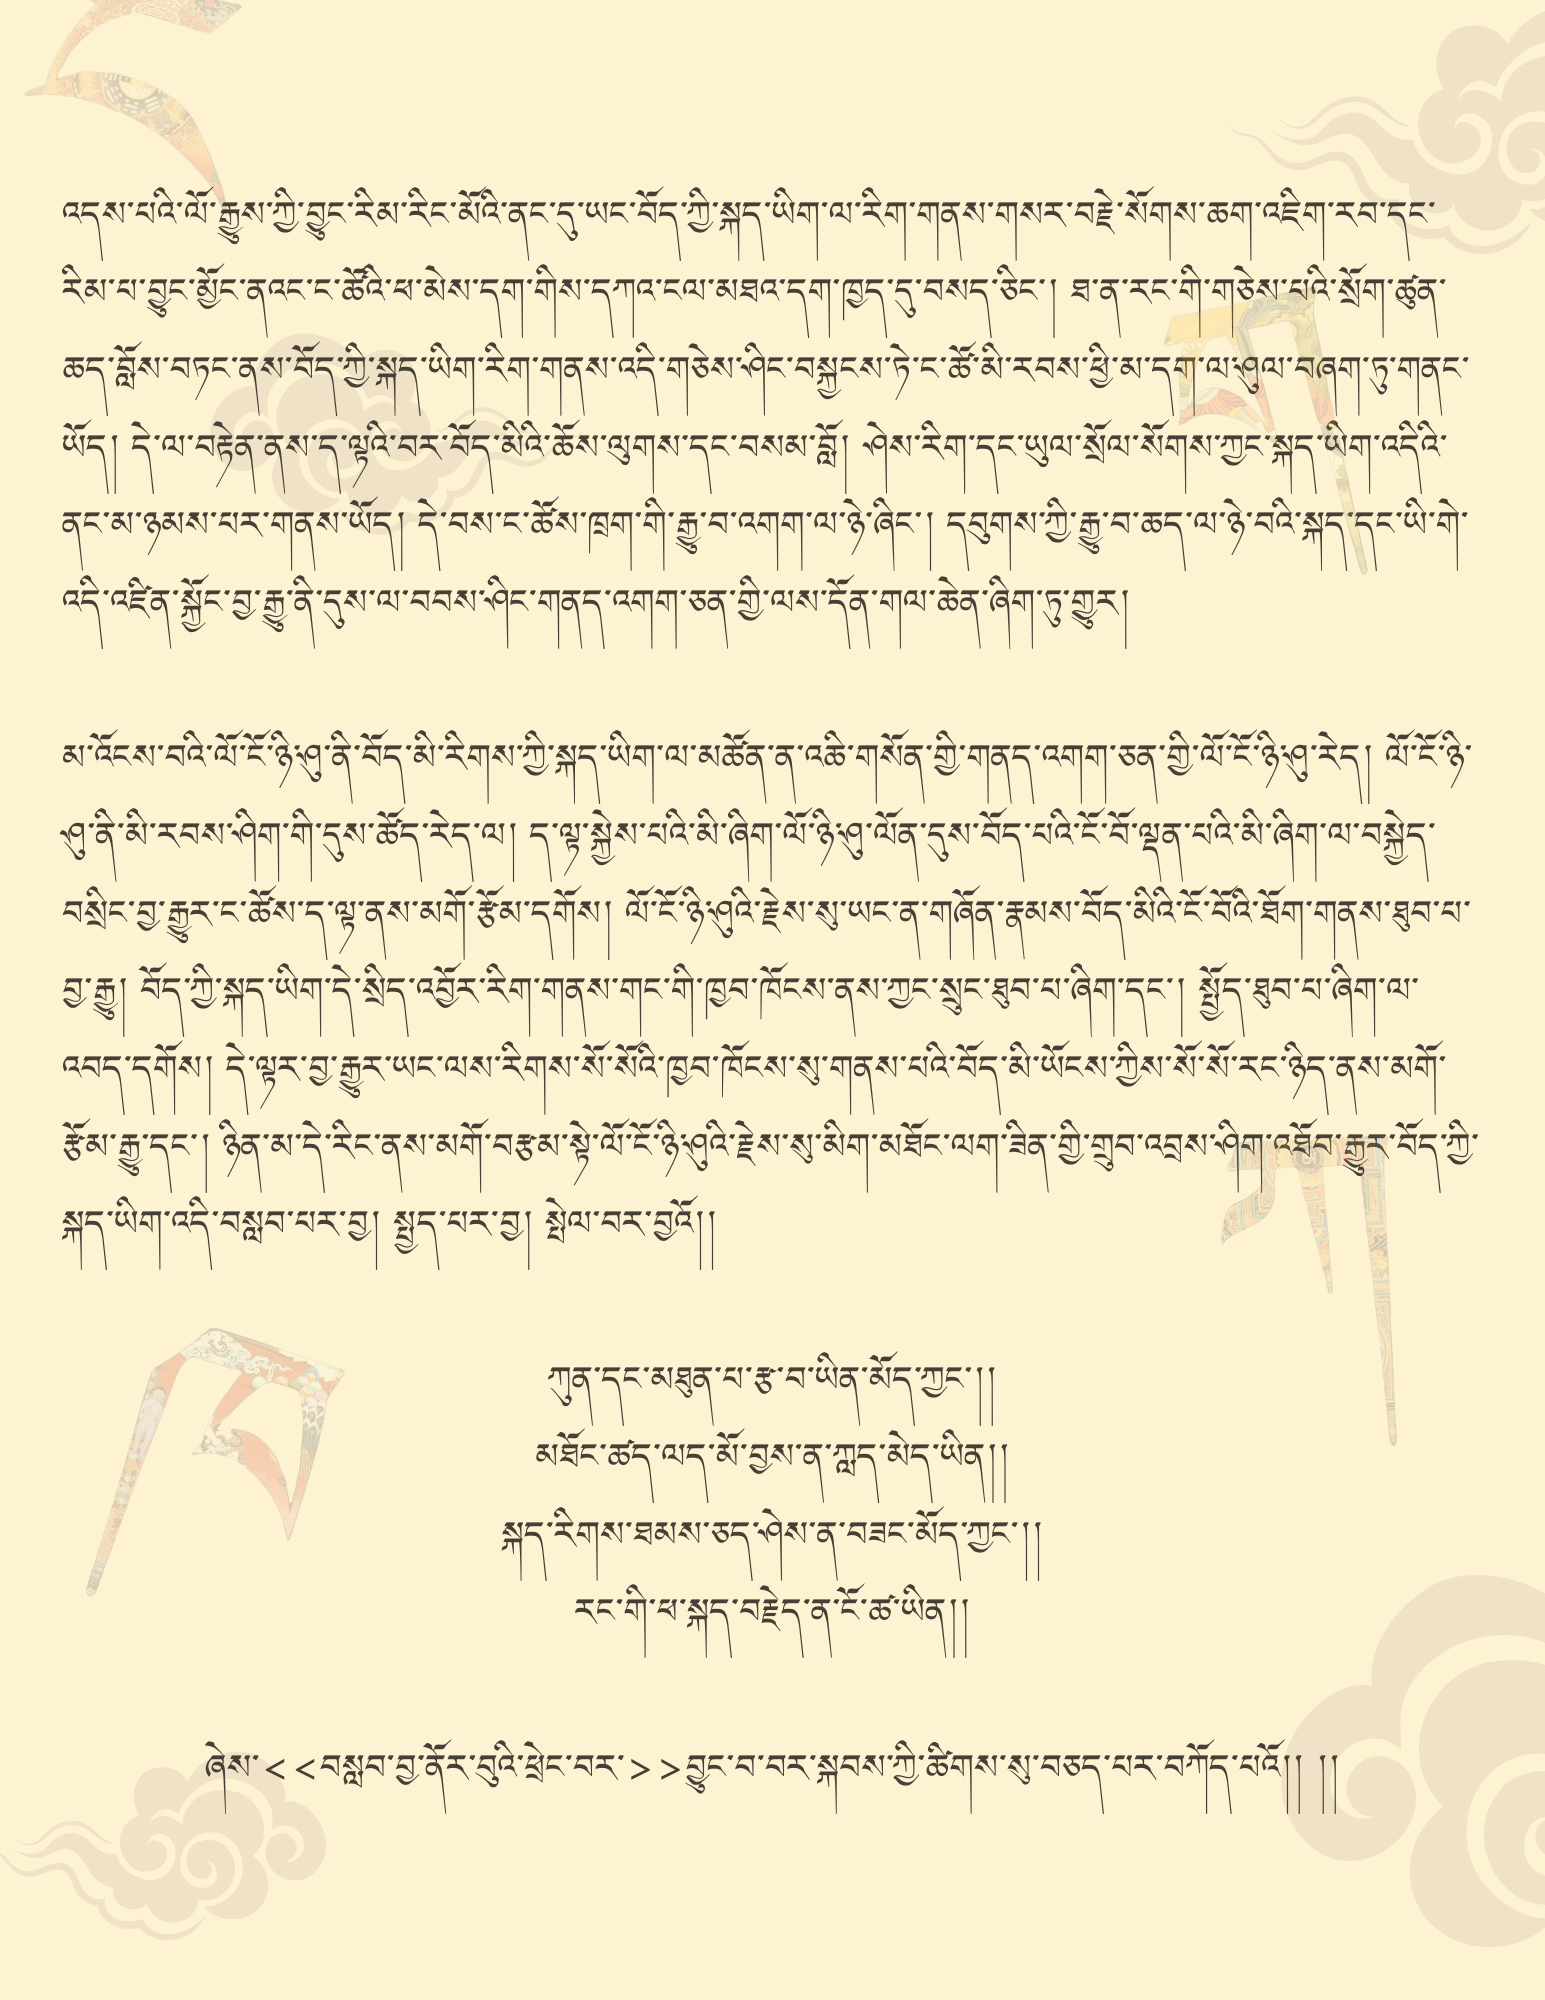 འདས་པའི་ལོ་རྒྱུས་ཀྱི་བྱུང་རིམ་རིང་མོའི་ནང་དུ་ཡང་བོད་ཀྱི་སྐད་ཡིག་ལ་རིག་གནས་གསར་བརྗེ་སོགས་ཆག་འཇིག་རབ་དང་
རིམ་པ་བྱུང་མྱོང་ནའང་ང་ཚོའི་ཕ་མེས་དག་གིས་དཀའ་ངལ་མཐའ་དག་ཁྱད་དུ་བསད་ཅིང་། ཐ་ན་རང་གི་གཅེས་པའི་སྲོག་ཚུན་
ཆད་བློས་བཏང་ནས་བོད་ཀྱི་སྐད་ཡིག་རིག་གནས་འདི་གཅེས་ཤིང་བསྐྱངས་ཏེ་ང་ཚོ་མི་རབས་ཕྱི་མ་དག་ལ་ཤུལ་བཞག་ཏུ་གནང་
ཡོད། དེ་ལ་བརྟེན་ནས་ད་ལྟའི་བར་བོད་མིའི་ཆོས་ལུགས་དང་བསམ་བློ། ཤེས་རིག་དང་ཡུལ་སྲོལ་སོགས་ཀྱང་སྐད་ཡིག་འདིའི་
ནང་མ་ཉམས་པར་གནས་ཡོད། དེ་བས་ང་ཚོས་ཁྲག་གི་རྒྱུ་བ་འགག་ལ་ཉེ་ཞིང་། དབུགས་ཀྱི་རྒྱུ་བ་ཆད་ལ་ཉེ་བའི་སྐད་དང་ཡི་གེ་
འདི་འཛིན་སྐྱོང་བྱ་རྒྱུ་ནི་དུས་ལ་བབས་ཤིང་གནད་འགག་ཅན་གྱི་ལས་དོན་གལ་ཆེན་ཞིག་ཏུ་གྱུར།
མ་འོངས་བའི་ལོ་ངོ་ཉི་ཤུ་ནི་བོད་མི་རིགས་ཀྱི་སྐད་ཡིག་ལ་མཚོན་ན་འཆི་གསོན་གྱི་གནད་འགག་ཅན་གྱི་ལོ་ངོ་ཉི་ཤུ་རེད། ལོ་ངོ་ཉི་
ཤུ་ནི་མི་རབས་ཤིག་གི་དུས་ཚོད་རེད་ལ། ད་ལྟ་སྐྱེས་པའི་མི་ཞིག་ལོ་ཉི་ཤུ་ལོན་དུས་བོད་པའི་ངོ་བོ་ལྡན་པའི་མི་ཞིག་ལ་བསྐྱེད་
བསྲིང་བྱ་རྒྱུར་ང་ཚོས་ད་ལྟ་ནས་མགོ་རྩོམ་དགོས། ལོ་ངོ་ཉི་ཤུའི་རྗེས་སུ་ཡང་ན་གཞོན་རྣམས་བོད་མིའི་ངོ་བོའི་ཐོག་གནས་ཐུབ་པ་
བྱ་རྒྱུ། བོད་ཀྱི་སྐད་ཡིག་དེ་སྲིད་འབྱོར་རིག་གནས་གང་གི་ཁྱབ་ཁོངས་ནས་ཀྱང་སྲུང་ཐུབ་པ་ཞིག་དང་། སྤྱོད་ཐུབ་པ་ཞིག་ལ་
འབད་དགོས། དེ་ལྟར་བྱ་རྒྱུར་ཡང་ལས་རིགས་སོ་སོའི་ཁྱབ་ཁོངས་སུ་གནས་པའི་བོད་མི་ཡོངས་ཀྱིས་སོ་སོ་རང་ཉིད་ནས་མགོ་
རྩོམ་རྒྱུ་དང་། ཉིན་མ་དེ་རིང་ནས་མགོ་བརྩམ་སྟེ་ལོ་ངོ་ཉི་ཤུའི་རྗེས་སུ་མིག་མཐོང་ལག་ཟིན་གྱི་གྲུབ་འབྲས་ཤིག་འཐོབ་རྒྱུར་བོད་ཀྱི་
སྐད་ཡིག་འདི་བསླབ་པར་བྱ། སྤྱད་པར་བྱ། སྤེལ་བར་བྱའོ།།
ཀུན་དང་མཐུན་པ་རྩ་བ་ཡིན་མོད་ཀྱང་།།
མཐོང་ཚད་ལད་མོ་བྱས་ན་ཀླད་མེད་ཡིན།།
སྐད་རིགས་ཐམས་ཅད་ཤེས་ན་བཟང་མོད་ཀྱང་།།
རང་གི་ཕ་སྐད་བརྗེད་ན་ངོ་ཚ་ཡིན།།
ཞེས་<<བསླབ་བྱ་ནོར་བུའི་ཕྲེང་བར་>>བྱུང་བ་བར་སྐབས་ཀྱི་ཚིགས་སུ་བཅད་པར་བཀོད་པའོ།། །།